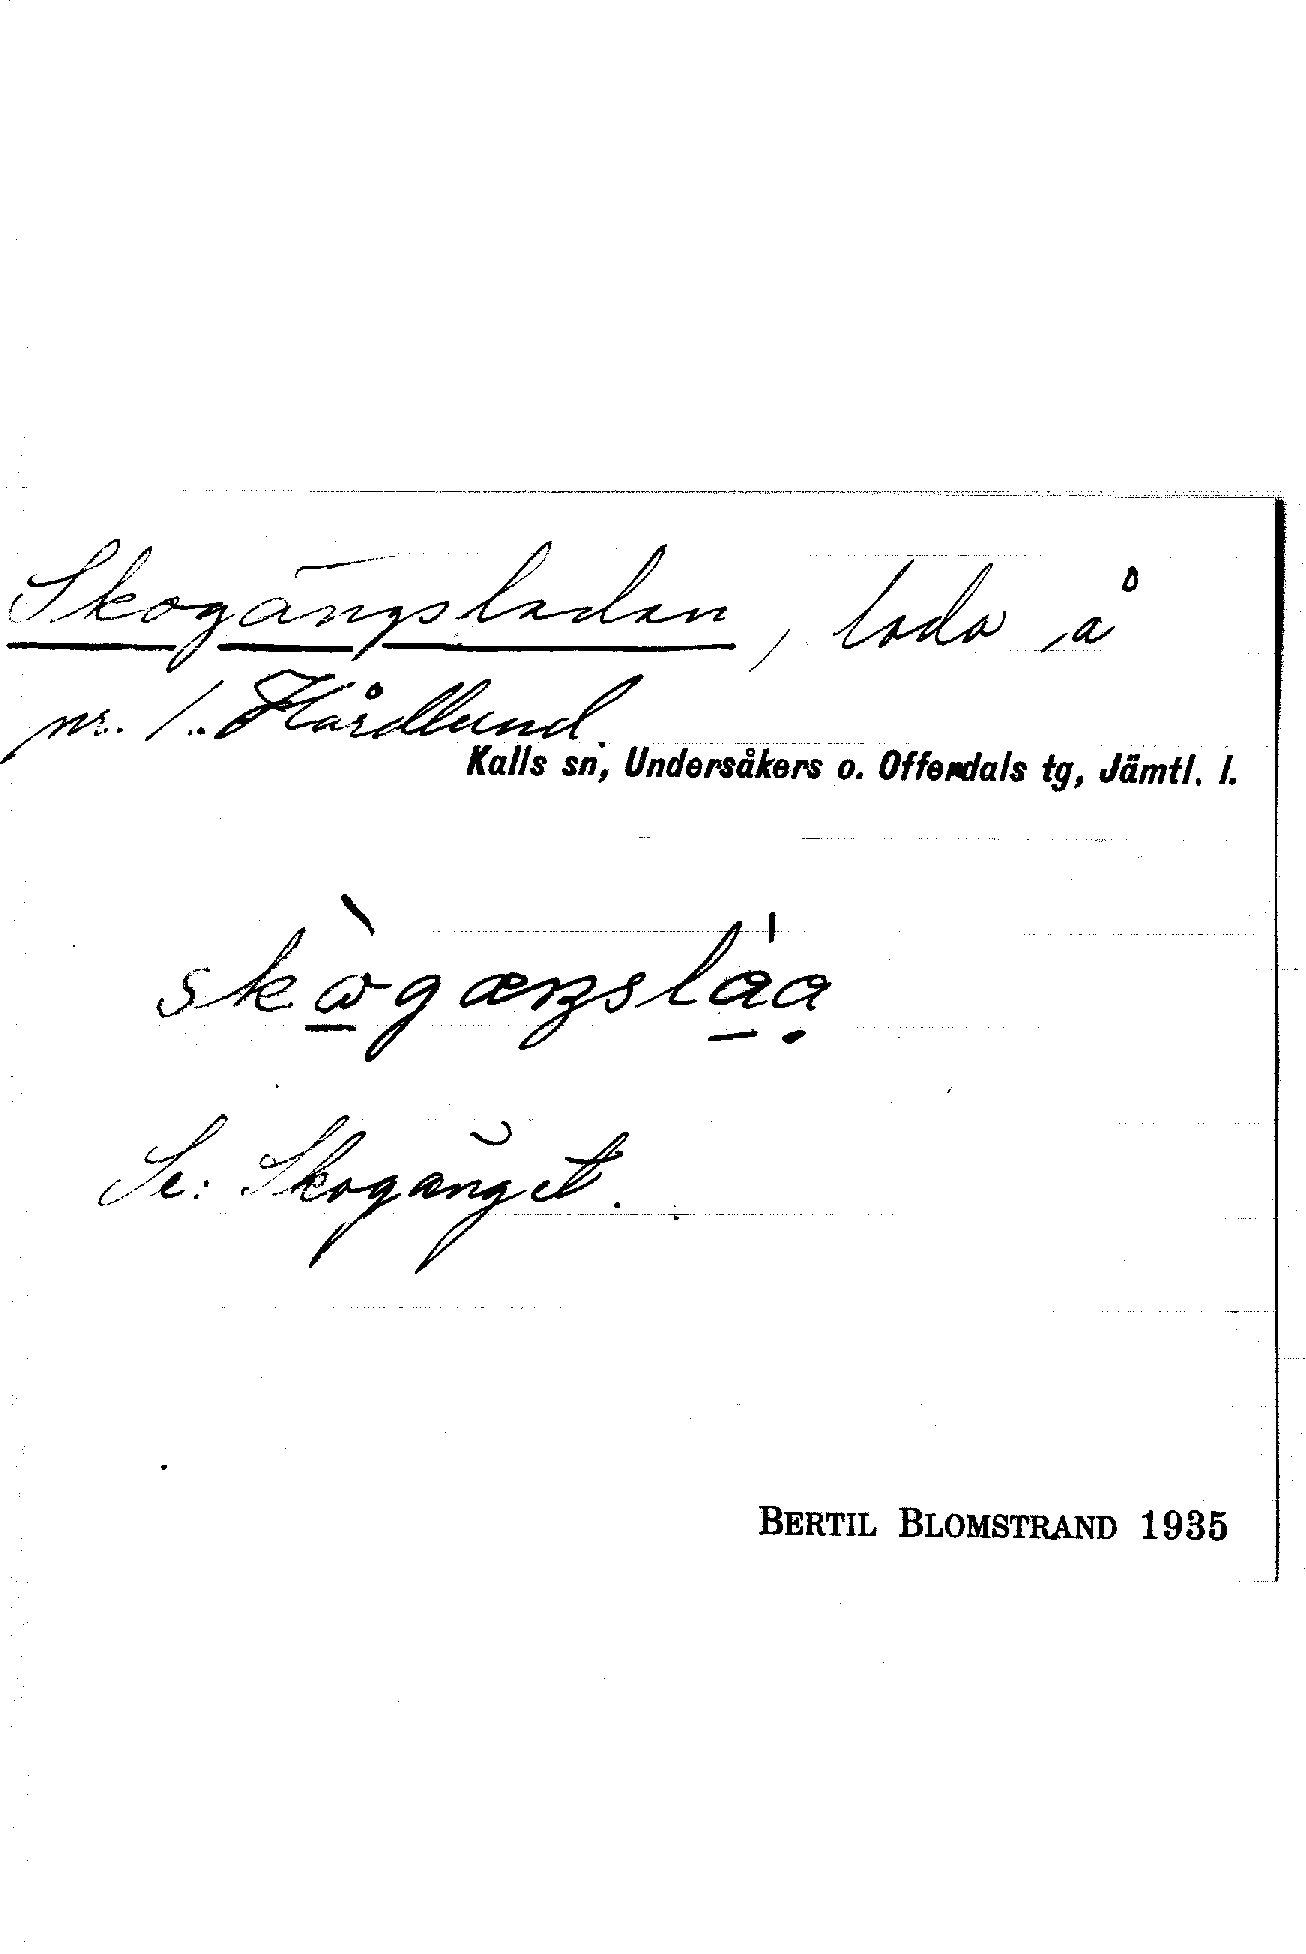 Skogängsladan, lada å
nr. 1. Hårdlund.
Kalls sn, Undersåkers o. Offerdals tg, Jämtl. l.
skɷ̀gæŋsláa
Se: Skogänget.
BERTIL BLOMSTRAND 1935